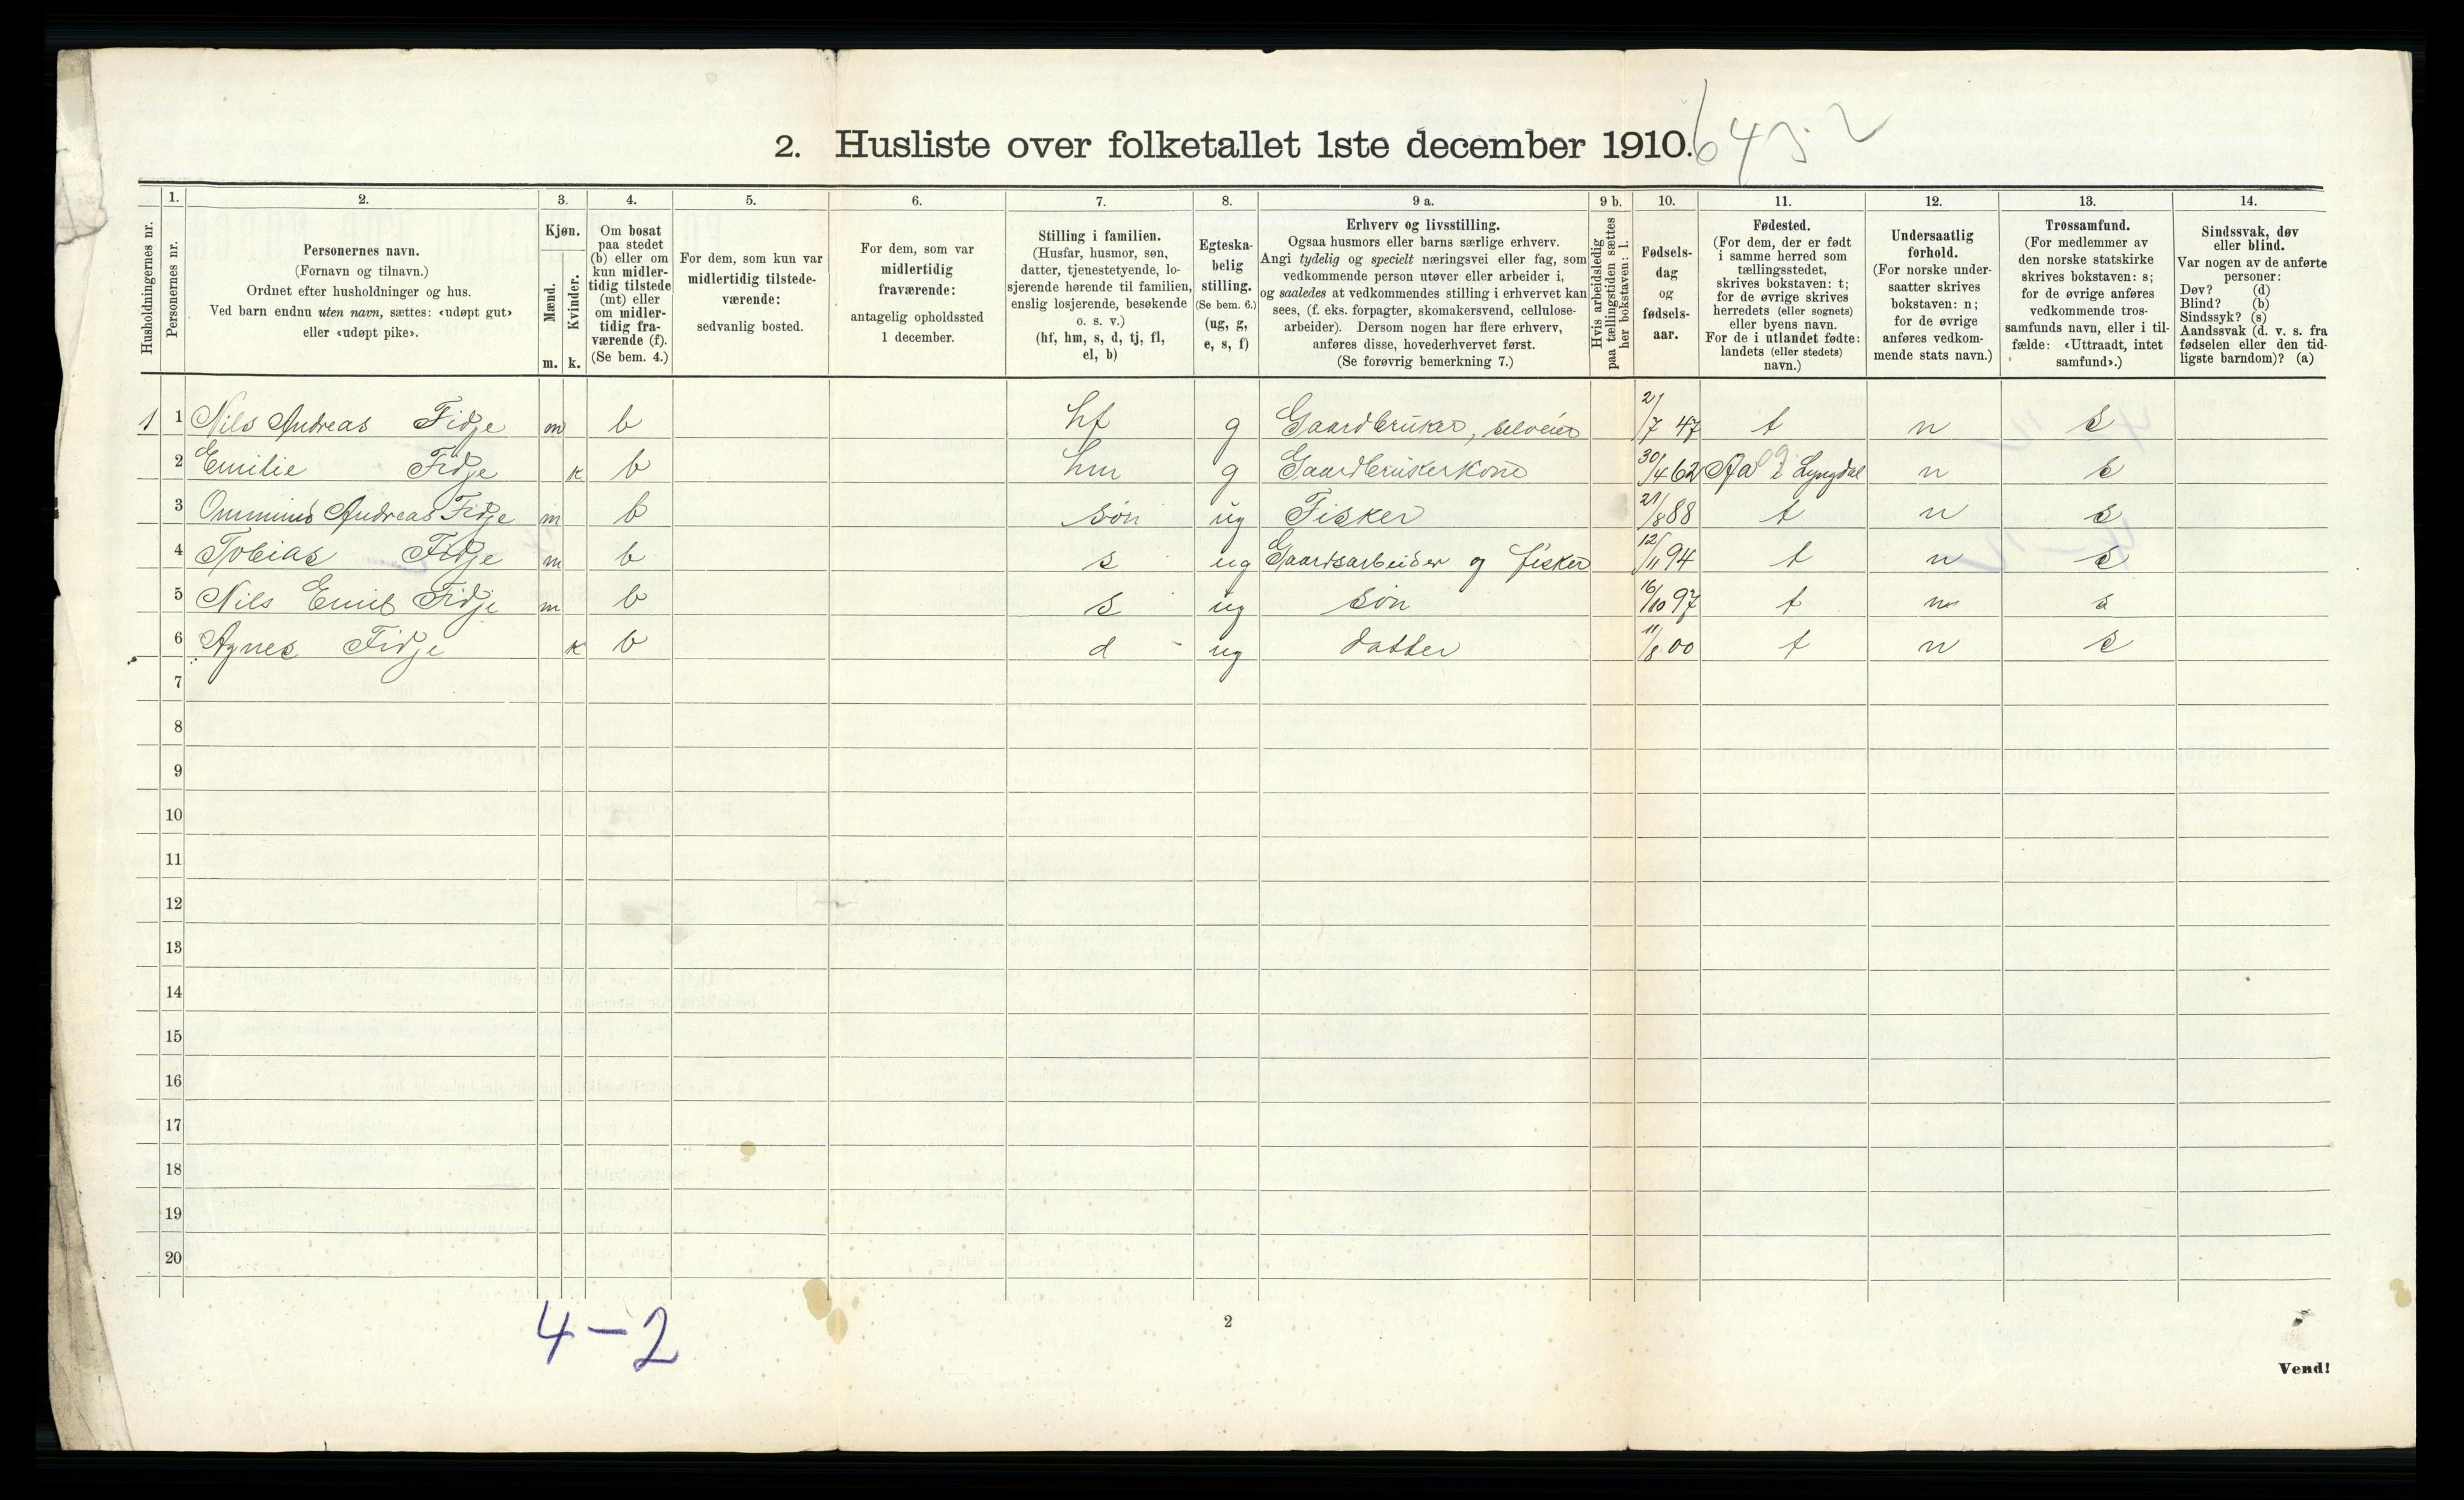 2. Husliste over folketallet 1ste december 1910.
Husholdningernes nr.
1.
Personernes nr.
2.
Personernes navn.
(Fornavn og tilnavn.)
Ordnet efter husholdninger og hus.
Ved barn endnu uten navn, sættes: «udøpt gut»
eller «udøpt pike».
3.
Kjøn.
Mænd.
Kvinder.
m. k.
4.
Om bosat
paa stedet
(b) eller om
kun midler-
tidig tilstede
(mt) eller
om midler-
tidig fra-
værende (f).
(Se bem. 4.)
5.
For dem, som kun var
midlertidig tilstede-
værende:
sedvanlig bosted.
6.
For dem, som var
midlertidig
fraværende:
antagelig opholdssted
1 december.
7.
Stilling i familien.
(Husfar, husmor, søn,
datter, tjenestetyende, lo-
sjerende hørende til familien,
enslig losjerende, besøkende
o. s. v.)
(hf, hm, s, d, tj, fl,
el, b)
8.
Egteska-
belig
stilling.
(Se bem. 6.)
(ug, g,
e, s, f)
9 a.
Erhverv og livsstilling.
Ogsaa husmors eller barns særlige erhverv.
Angi tydelig og specielt næringsvei eller fag, som
vedkommende person utøver eller arbeider i,
og saaledes at vedkommendes stilling i erhvervet kan
sees, (f. eks. forpagter, skomakersvend, cellulose-
arbeider). Dersom nogen har flere erhverv,
anføres disse, hovederhvervet først.
(Se forøvrig bemerkning 7.)
9 b.
Hvis arbeidsledig
paa tællingstiden sættes
her bokstaven: l.
10.
Fødsels-
dag
og
fødsels-
aar.
11.
Fødested.
(For dem, der er født
i samme herred som
tællingsstedet,
skrives bokstaven: t;
for de øvrige skrives
herredets (eller sognets)
eller byens navn.
For de i utlandet fødte:
landets (eller stedets)
navn.)
12.
Undersaatlig
forhold.
(For norske under-
saatter skrives
bokstaven: n;
for de øvrige
anføres vedkom-
mende stats navn.)
13.
Trossamfund.
(For medlemmer av
den norske statskirke
skrives bokstaven: s;
for de øvrige anføres
vedkommende tros-
samfunds navn, eller i til-
fælde: «Uttraadt, intet
samfund».)
14.
Sindssvak, døv
eller blind.
Var nogen av de anførte
personer:
Døv? (d)
Blind? (b)
Sindssyk? (s)
Aandssvak (d. v. s. fra
fødselen eller den tid-
ligste barndom)? (a)
1 1 Nils Andreas Fidje m b hf g Gaardbruker, selveier 21/7 47 t n s
2 Emilie Fidje k b hm g Gaardbrukerkone 30/4 62 Aa i Lyngdal n s
3 Ommund Andreas Fidje m b søn ug Fisker 21/8 88 t n s
4 Tobias Fidje m b s ug Gaardsarbeider og fisker 12/11 94 t n s
5 Nils Emil Fidje m b s ug søn 16/10 97 t n s
6 Agnes Fidje k b d - ug datter 11/8 00 t n s
7
8
9
10
11
12
13
14
15
16
17
18
19
20
4 - 2
2
Vend!